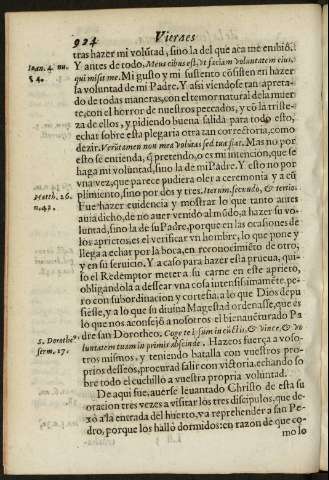 924 Viernes
tras hazer mi volũtad, sino la del que acà me embiò.
Ioan. 4. nu. Y antes de todo, Meus cibus est, vt faciam voluntatem eius,
34. qui misit me. Mi gusto y mi sustento cõsisten en hazer
la voluntad de mi Padre. Y assi viendose tan apreta-
do de todas maneras, con el temor natural de la muer
te, con el horror de nuestros peccados, y cõ la triste-
za de ellos, y pidiendo buena salida para todo esto,
echar sobre esta plegaria otra tan correctoria, como
dezir. Verũtamen non mea volũtas sed tua fiat. Mas no por
esto se entienda, q̃ pretendio, o es mi intencion, que se
haga mi voluntad, sino la de mi Padre. Y esto no por
vna vez, que parece pudiera oler a ceremonia y a cũ
Matth. 26. plimiento, sino por dos y tres. Iterum, secundo, & tertio.
n. 42. Fue hazer euidencia y mostrar lo que tanto antes
auia dicho, de no auer venido al mũdo, a hazer su vo-
luntad, sino la de su Padre, porque en las ocasiones de
los aprietos, es el verificar vn hombre, lo que pone y
llega a echar por la boca, en reconocimiẽto de otro,
y en su seruicio. Y a caso para hazer esta prueua, qui-
so el Redemptor meter a su carne en este aprieto,
obligandola a dessear vna cosa intensissimamẽte, pe-
ro con subordinacion cortesa, a lo que Dios depu
siesse, y a lo que su diuina Magestad ordenasse, que es
lo que nos aconsejò a nosotros el bienauẽturado Pa
S. Dorotheº. dre san Dorotheo. Coge te ipsum in cũctis, & vince, & vo
serm. 17. luntatem tuam in primis abscinde. Hazeos fuerça a voso-
tros mismos, y teniendo batalla con vuestros pro-
prios desseos, procurad salir con victoria, echando so
bre todo el cuchillo a vuestra propria voluntad.
De aqui fue, auerse leuantado Christo de esta su
oracion tres vezes a visitar los tres discipulos, que de-
xò a la entrada del huerto, va reprehender a san Pe-
dro, porque los hallò dormidos: en razon de que co-
mo lo